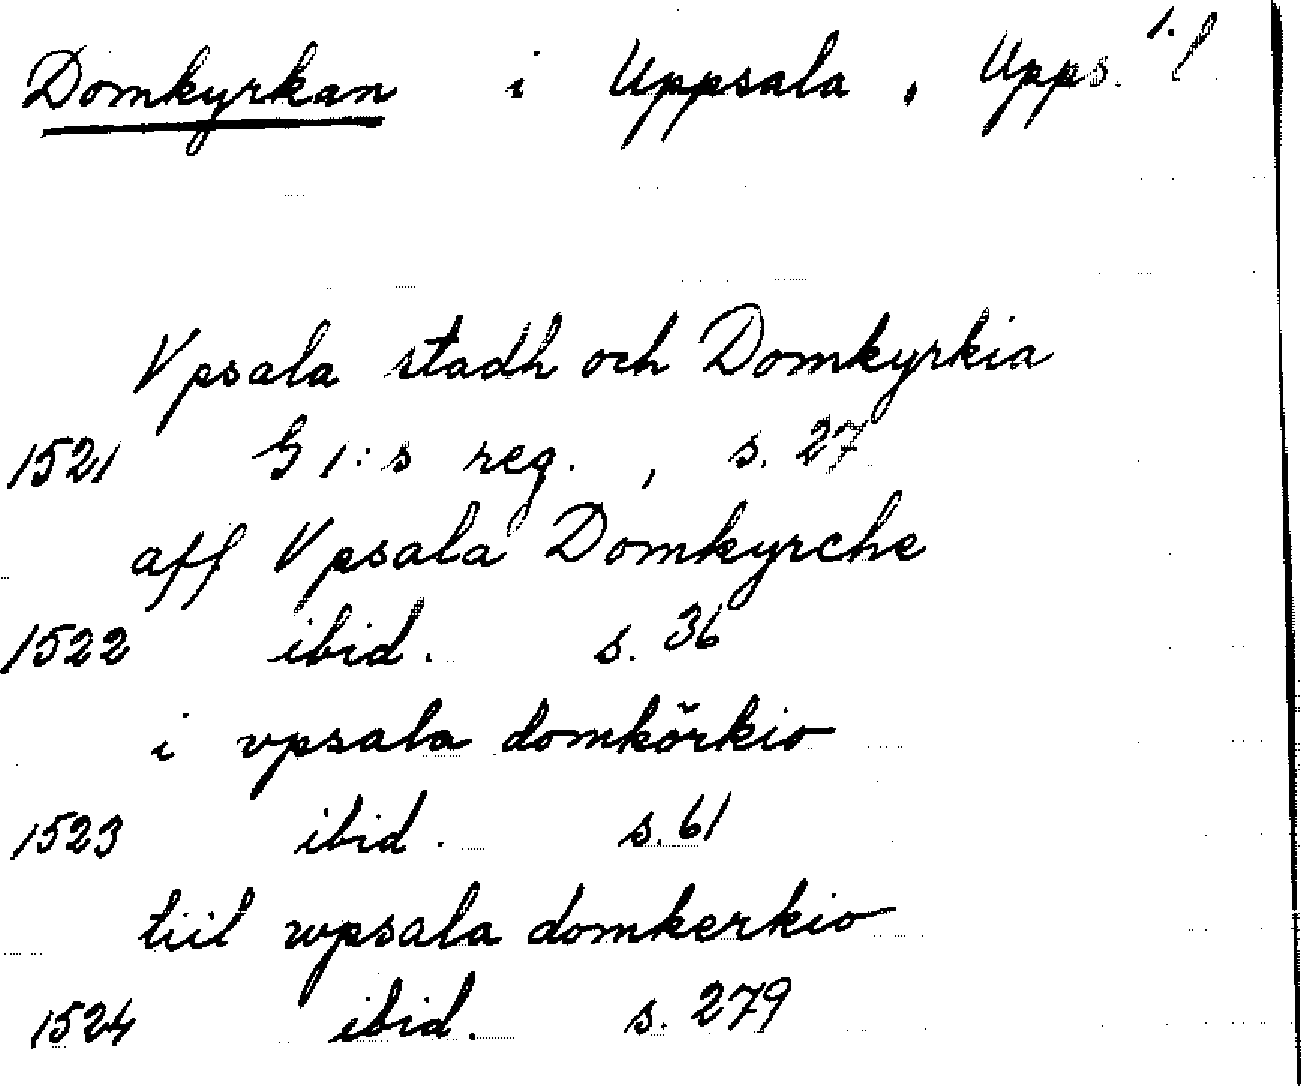 Domkyrkan i Uppsala, Upps. l. 1.
Vpsala stadh och Domkyrkia
1521 G 1:s reg., s. 27
aff Vpsala Domkyrche
1522 ibid. s. 36
i vpsala domkörkio
1523 ibid. s. 61
tiil wpsala domkerkio
1524 ibid. s. 279